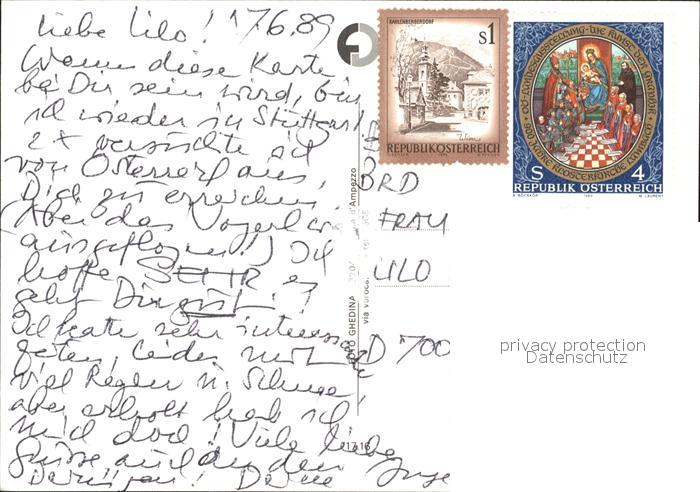 Liebe Lilo! 17.6.89
Wenn diese Karte
bei Dir sein wird, bin
ich wieder in Stuttgart
2x versuchte ich
von Österreich aus,
Dich zu erreichen,
Aber das Vogerl war
ausgeflogen!) Ich
hoffe SEHR es
geht Dir gut!
Ich hatte sehr interess
leider mit
viel Regen u. Schnee
aber erholt hab ich
mich doch! Viele liebe
Grüsse auch an den
Deinigen! Deine
Inge
KAHLENBERGERDORF
S1
REPUBLIK ÖSTERREICH
S 4
REPUBLIK ÖSTERREICH
BRD
FRAU
LILO
D 700
FOTO GHEDINA
d'Ampezzo
privacy protection
Datenschutz